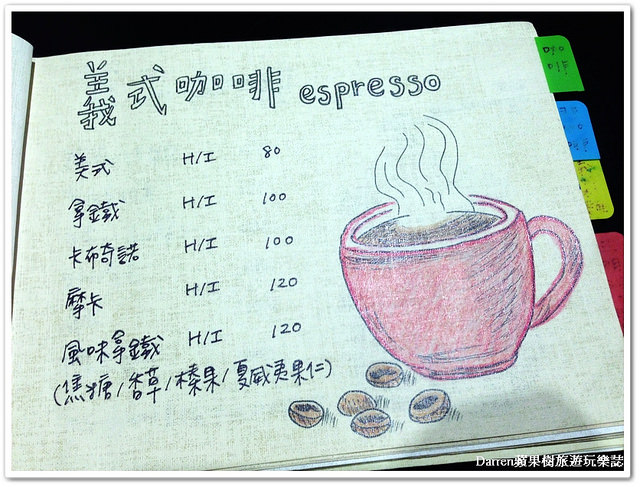 義式咖啡 espresso
美式 H/I 80
拿鐵 H/I 100
卡布奇諾 H/I 100
摩卡 H/I 120
風味拿鐵 H/I 120
(焦糖/香草/榛果/夏威夷果仁)
咖啡
Darren蘋果樹旅遊玩樂誌